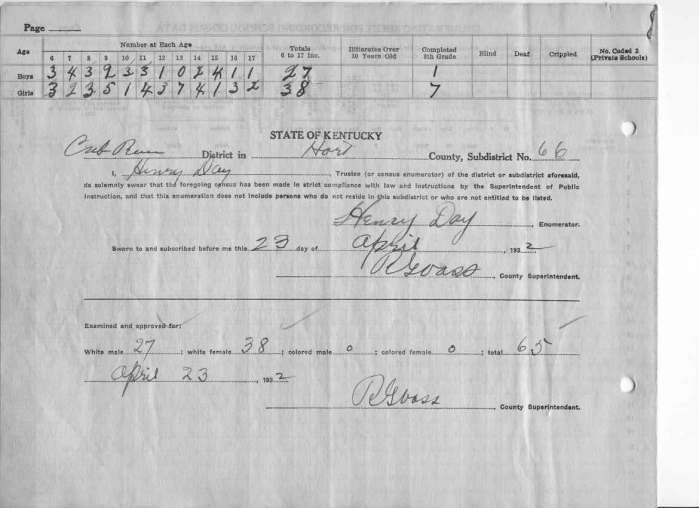 Page
Age Number at Each Age Totals 6 to 17 Inc. Illiterates Over 10 Years Old Completed 8th Grade Blind Deaf Crippled No. Caded 2 (Private Schools)
6 7 8 9 10 11 12 13 14 15 16 17
Boys 3 4 3 2 3 3 1 0 2 4 1 1 27 1
Girls 3 2 3 5 1 4 3 7 4 1 3 2 38 7
STATE OF KENTUCKY
Cub Run District in Hart County, Subdistrict No. 66
I, Henry Day, Trustee (or census enumerator) of the district or subdistrict aforesaid,
do solemnly swear that the foregoing census has been made in strict compliance with law and instructions by the Superintendent of Public
Instruction, and that this enumeration does not include persons who do not reside in this subdistrict or who are not entitled to be listed.
Henry Day, Enumerator.
Sworn to and subscribed before me this 23 day of April, 1932
, County Superintendent.
Examined and approved for:
White male 27; white female 38; colored male 0; colored female 0; total 65
April 23, 1932
, County Superintendent.